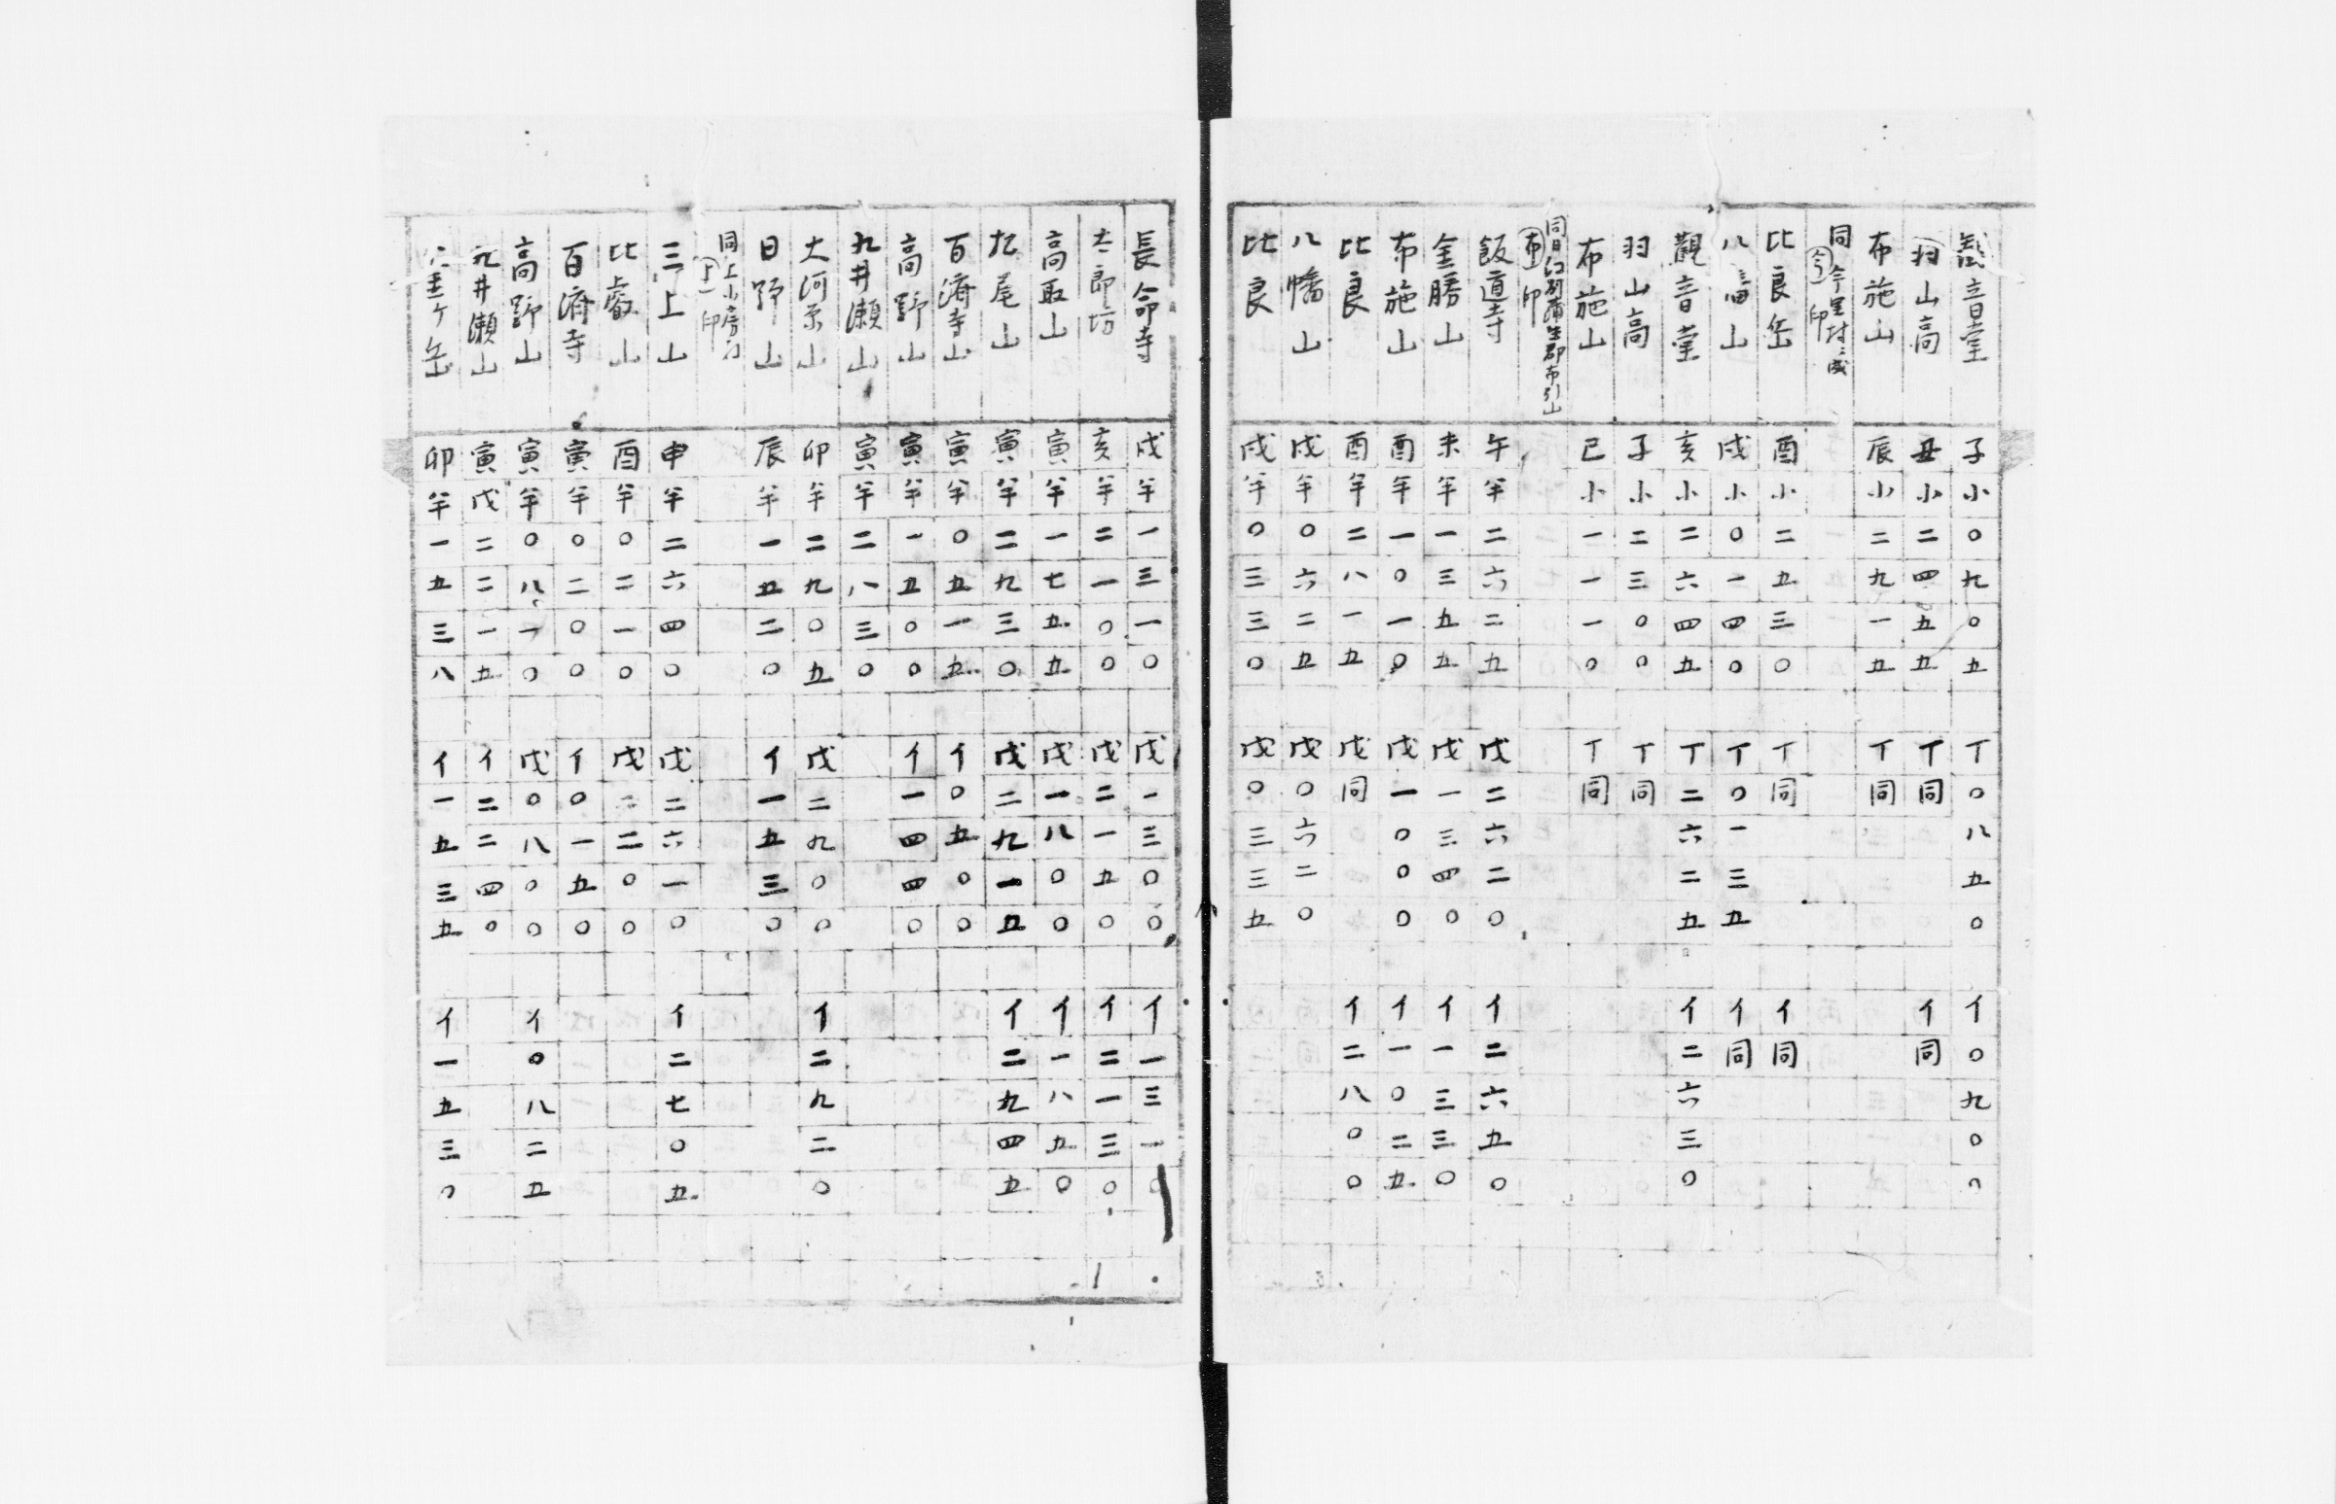 観音堂 子小〇九〇五 丁〇八五〇 イ〇九〇〇
羽山高 丑小二四五五 丁同 イ同
布施山 辰小二九一五 丁同
同 今里村ニ成 ㋿印
比良岳 酉小二五三〇 丁同 イ同
八幡山 戌小〇一四〇 丁〇一三五 イ同
觀音堂 亥小二六四五 丁二六二五 イ二六三〇
羽山高 子小二三〇〇 丁同
布施山 巳小一一一〇 丁同
同日江刕蒲生郡布引山 布印
飯道寺 午半二六二五 戊二六二〇 イ二六五〇
金勝山 未半一三五五 戊一三四〇 イ一三三〇
布施山 酉半一〇一〇 戊一〇〇〇 イ一〇二五
比良 酉半二八一五 戊同 イ二八〇〇
八幡山 戌半〇六二五 戊〇六二〇
比良 戌半〇三三〇 戊〇三三五
長命寺 戌半一三一〇 戊一三〇〇 イ一三一〇
太郎坊 亥半二一〇〇 戊二一五〇 イ二一三〇
高取山 寅半一七五五 戊一八〇〇 イ一八五〇
九尾山 寅半二九三〇 戊二九一五 イ二九四五
百濟寺山 寅半〇五一五 イ〇五〇〇
高野山 寅半一五〇〇 イ一四四〇
九井瀬山 寅半二八三〇
大河原山 卯半二九〇五 戊二九〇〇 イ二九二〇
日野山 辰半一五二〇 イ一五三〇
同上小 印
三上山 申半二六四〇 戊二六一〇 イ二七〇五
比叡山 酉半〇二一〇 戊〇二〇〇
百濟寺 寅半〇二〇〇 イ〇一五〇
高野山 寅半〇八一〇 戊〇八〇〇 イ〇八二五
九井瀬山 寅戊二二一五 イ二二四〇
ヶ岳 卯半一五三八 イ一五三五 イ一五三〇